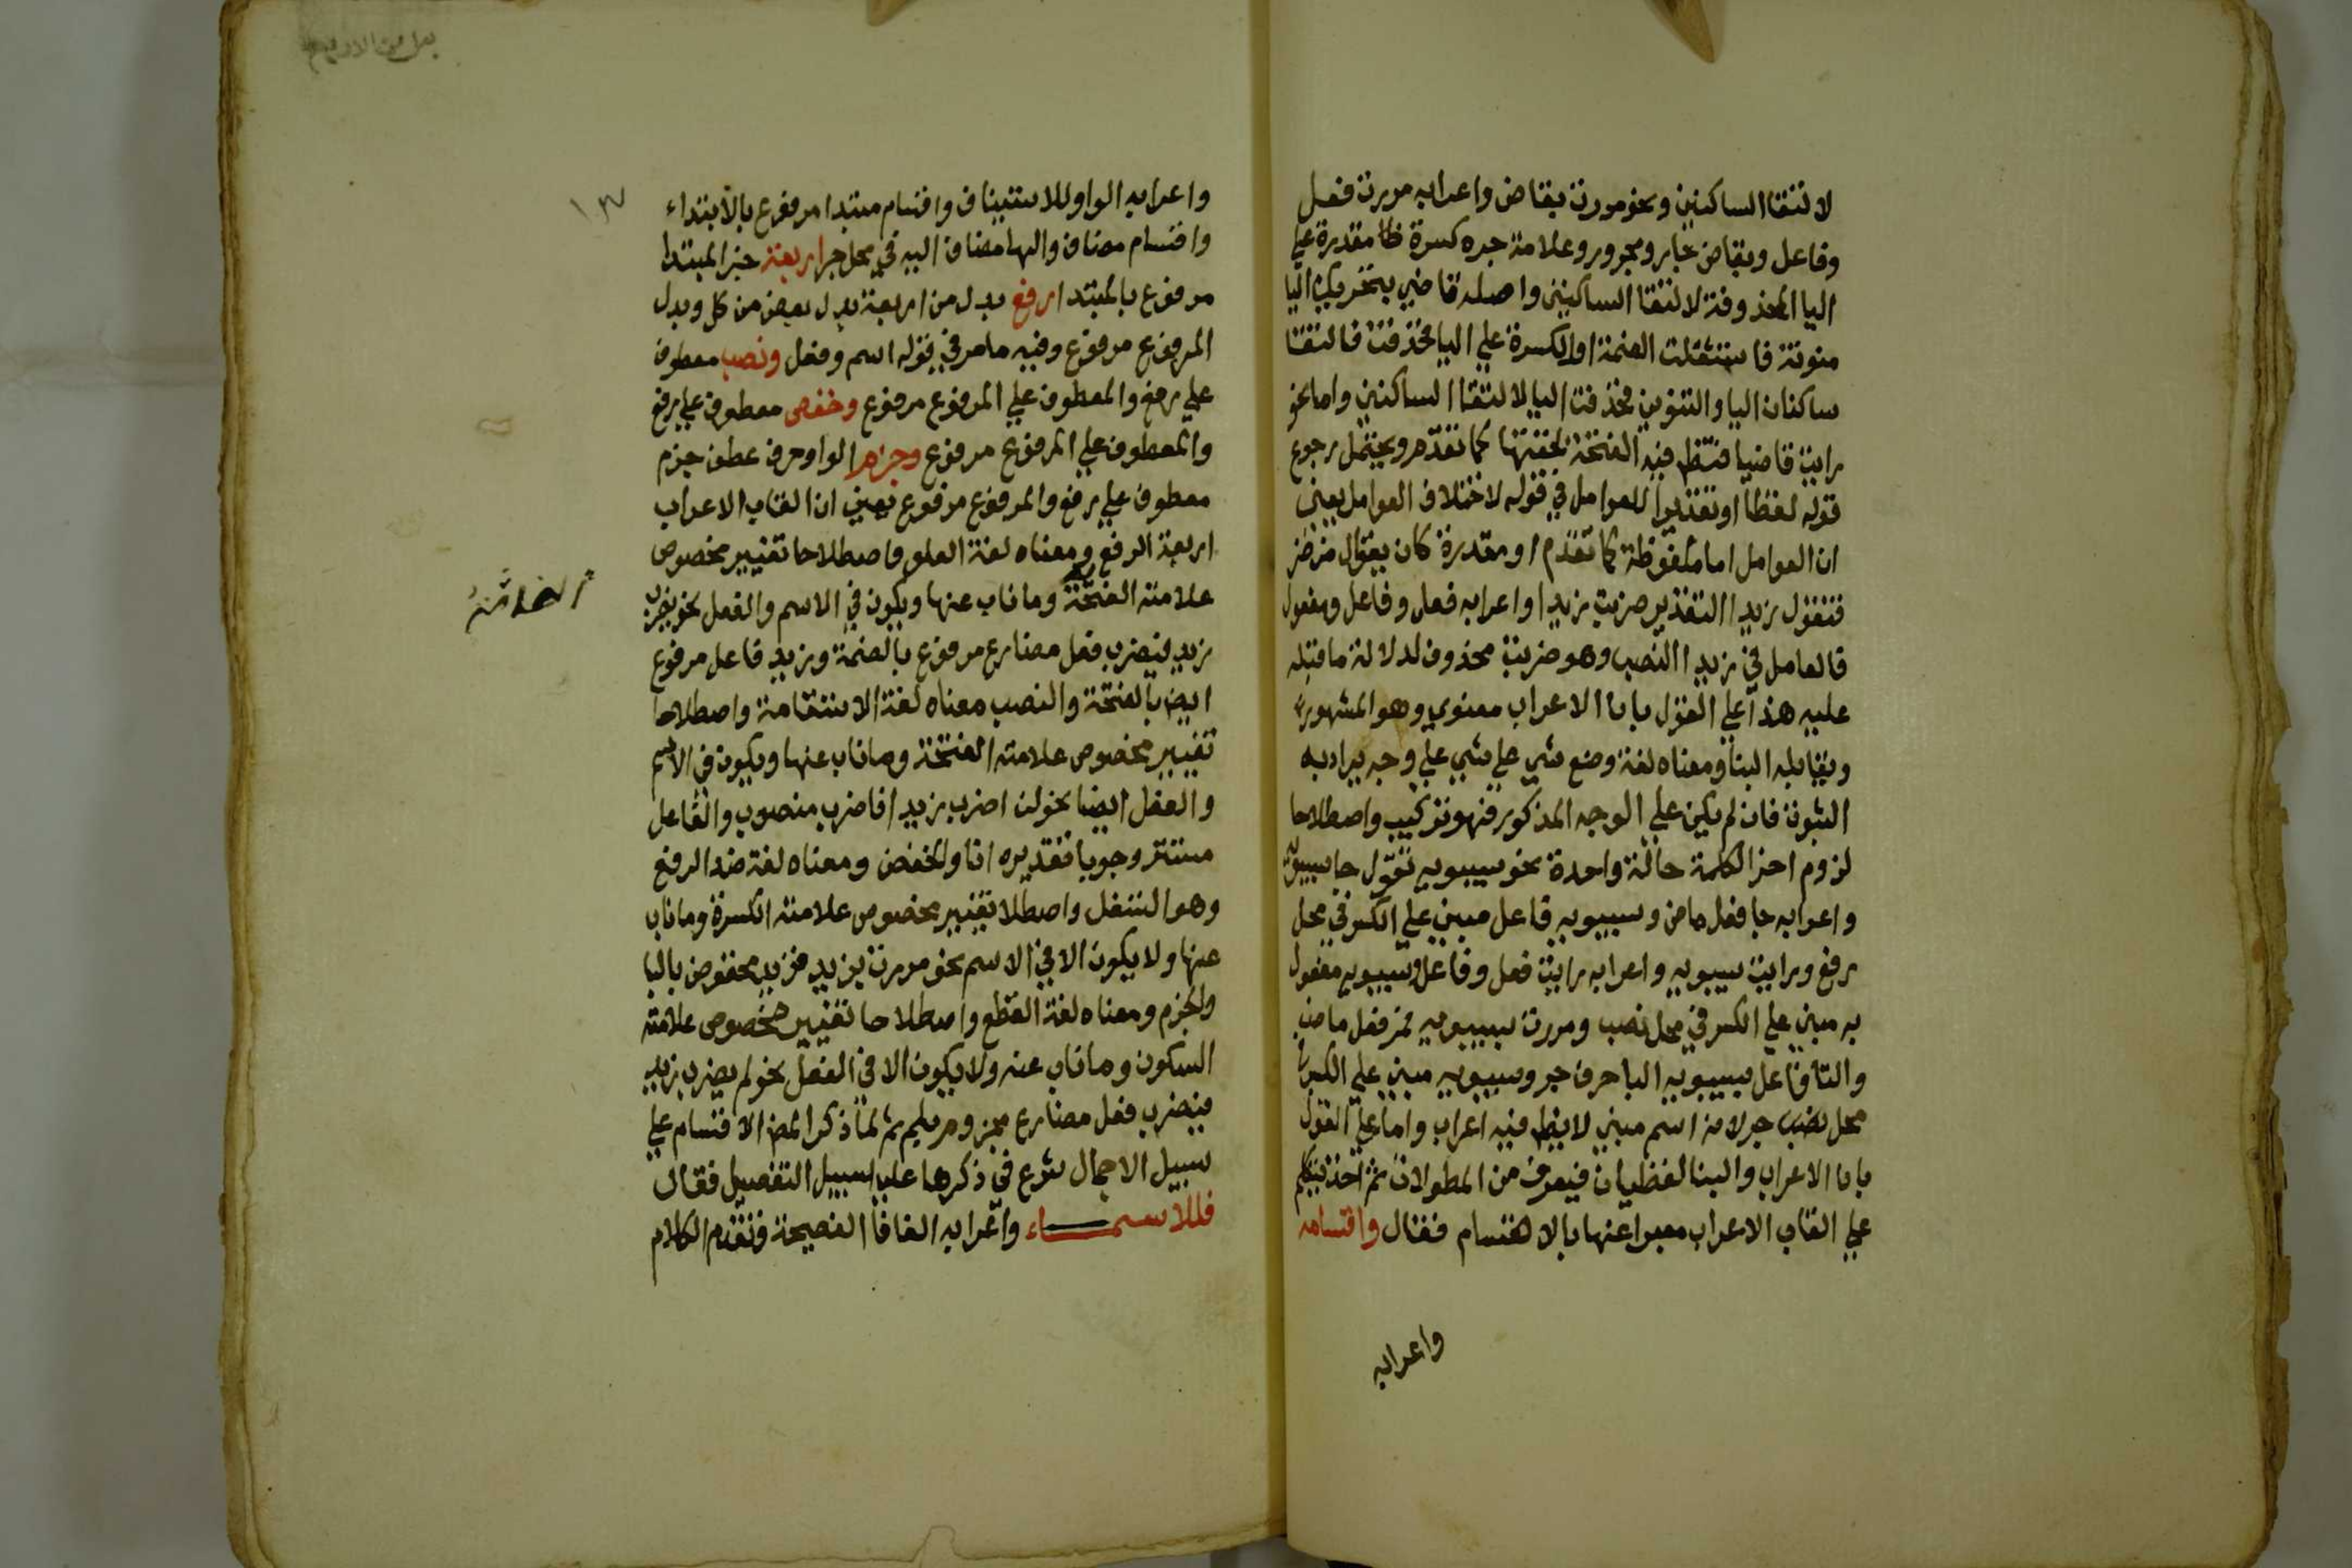 لالتقا الساكنين ونحو مررت بقاض واعرابه مررت فعل
وفاعل وبقاض جار ومجرور وعلامة جره كسرة ظا مقدرة علي
اليا المحذوفة لالتقا الساكنين واصله قاضي بتحريك اليا
منونة فاستثقلت الضمة او الكسرة علي اليا فحذفت فالتقا
ساكنان اليا والتنوين فحذفت اليا لالتقا الساكنين واما نحو
رايت قاضيا فتظهر فيه الفتحة لخفتها كما تقدم ويحتمل رجوع
قوله لفظا او تقديرا للعوامل في قوله لاختلاف العوامل يعني
ان العوامل اما ملفوظة كما تقدم او مقدرة كان يقال من ضرب
فتقول زيدا التقدير ضربت زيدا واعرابه فعل وفاعل ومفعول
فالعامل في زيدا النصب وهو ضربت محذوف لدلالة ما قبله
عليه هذا علي القول بان الاعراب معنوي وهو المشهور
ويقابله البنا ومعناه لغة وضع شي علي شي علي وجه يراد به
الثبوت فان لم يكن علي الوجه المذكور فهو تركيب واصطلاحا
لزوم اخر الكلمة حالة واحدة نحو سيبويه تقول جا سيبويه
واعرابه جا فعل ماض وسيبويه فاعل مبني علي الكسر في محل
رفع ورايت سيبويه واعرابه رايت فعل وفاعل وسيبويه مفعول
به مبني علي الكسر في محل نصب ومررت بسيبويه فمر فعل ماض
والتا فاعل بسيبويه البا حرف جر وسيبويه مبني علي الكسر في
محل نصب جر لانه اسم مبني لا يظهر فيه اعراب واما علي القول
بان الاعراب والبنا لفظيان فيعرف من المطولات ثم اخذ يتكلم
علي القاب الاعراب معبرا عنها بالاقسام فقال واقسامه
واعرابه
١٣
واعرابه الواو للاستيناف واقسام مبتدا مرفوع بالابتداء
واقسام مضاف والها مضاف اليه في محل جر اربعة خبر المبتدا
مرفوع بالمبتدا رفع بدل من اربعة بدل بعض من كل وبدل
المرفوع مرفوع وفيه ما مر في قوله اسم وفعل ونصب معطوف
علي رفع والمعطوف علي المرفوع مرفوع وخفض معطوف علي رفع
والمعطوف علي المرفوع مرفوع وجزم الواو حرف عطف جزم
معطوف علي رفع والمرفوع مرفوع يعني ان القاب الاعراب
اربعة الرفع ومعناه لغة العلو واصطلاحا تغيير مخصوص
علامته الضمة وما ناب عنها ويكون في الاسم والفعل نحو يضرب
زيد فيضرب فعل مضارع مرفوع بالضمة وزيد فاعل مرفوع
ايض بالضمة والنصب معناه لغة الاستقامة واصطلاحا
تغيير مخصوص علامته الفتحة وما ناب عنها ويكون في الاسم
والفعل ايضا نحو لن اضرب زيدا فاضرب منصوب والفاعل
مستتر وجوبا تقديره انا والخفض ومعناه لغة ضد الرفع
وهو التسفل واصطلا تغيير مخصوص علامته الكسرة وما ناب
عنها ولا يكون الا في الاسم نحو مررت بزيد فزيد مخفوض بالبا
والجزم ومعناه لغة القطع واصطلاحا تغيير مخصوص علامته
السكون وما ناب عنه ولا يكون الا في الفعل نحو لم يضرب زيد
فيضرب فعل مضارع مجزوم بلم ثم لما ذكر المص الاقسام علي
سبيل الاجمال شرع في ذكرها علي سبيل التفصيل فقال
فللاسماء واعرابه الفا فا الفصيحة وتقدم الكلام